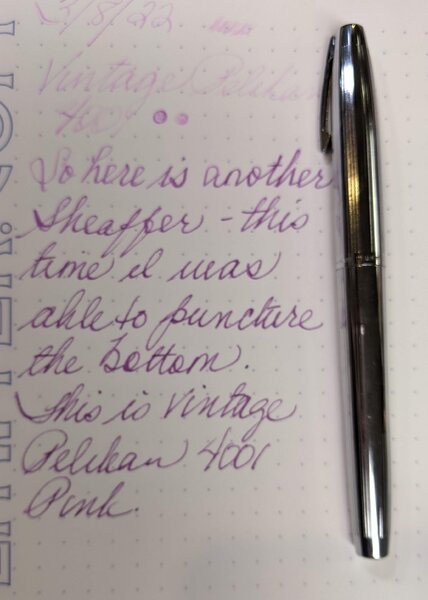 3/8/22
Vintage Pelikan
4001
So here is another
Sheaffer - this
time I was
able to puncture
the bottom.
This is Vintage
Pelikan 4001
Pink.